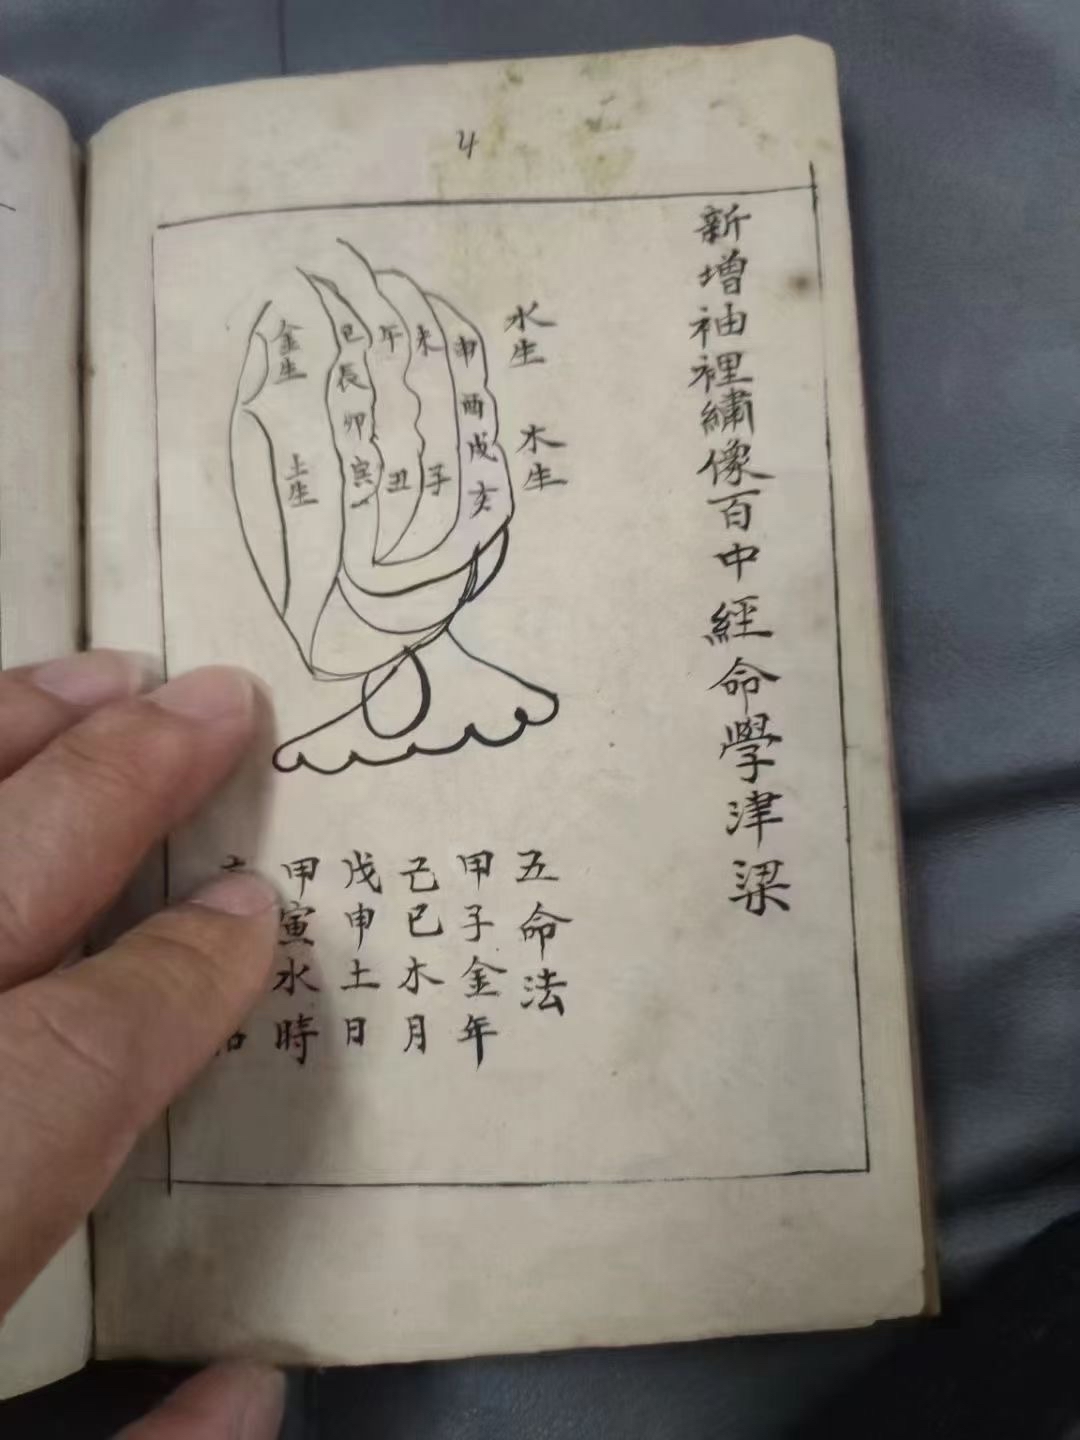 4
新增袖裡繡像百中經命學津梁
水生
木生
申酉戌亥
未
子
午
丑
巳辰卯寅
金生
土生
五命法
甲子金年
己巳木月
戊申土日
甲寅水時